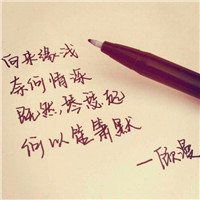 向来缘浅
奈何情深
既然琴瑟起
何以笙箫默
—顾漫